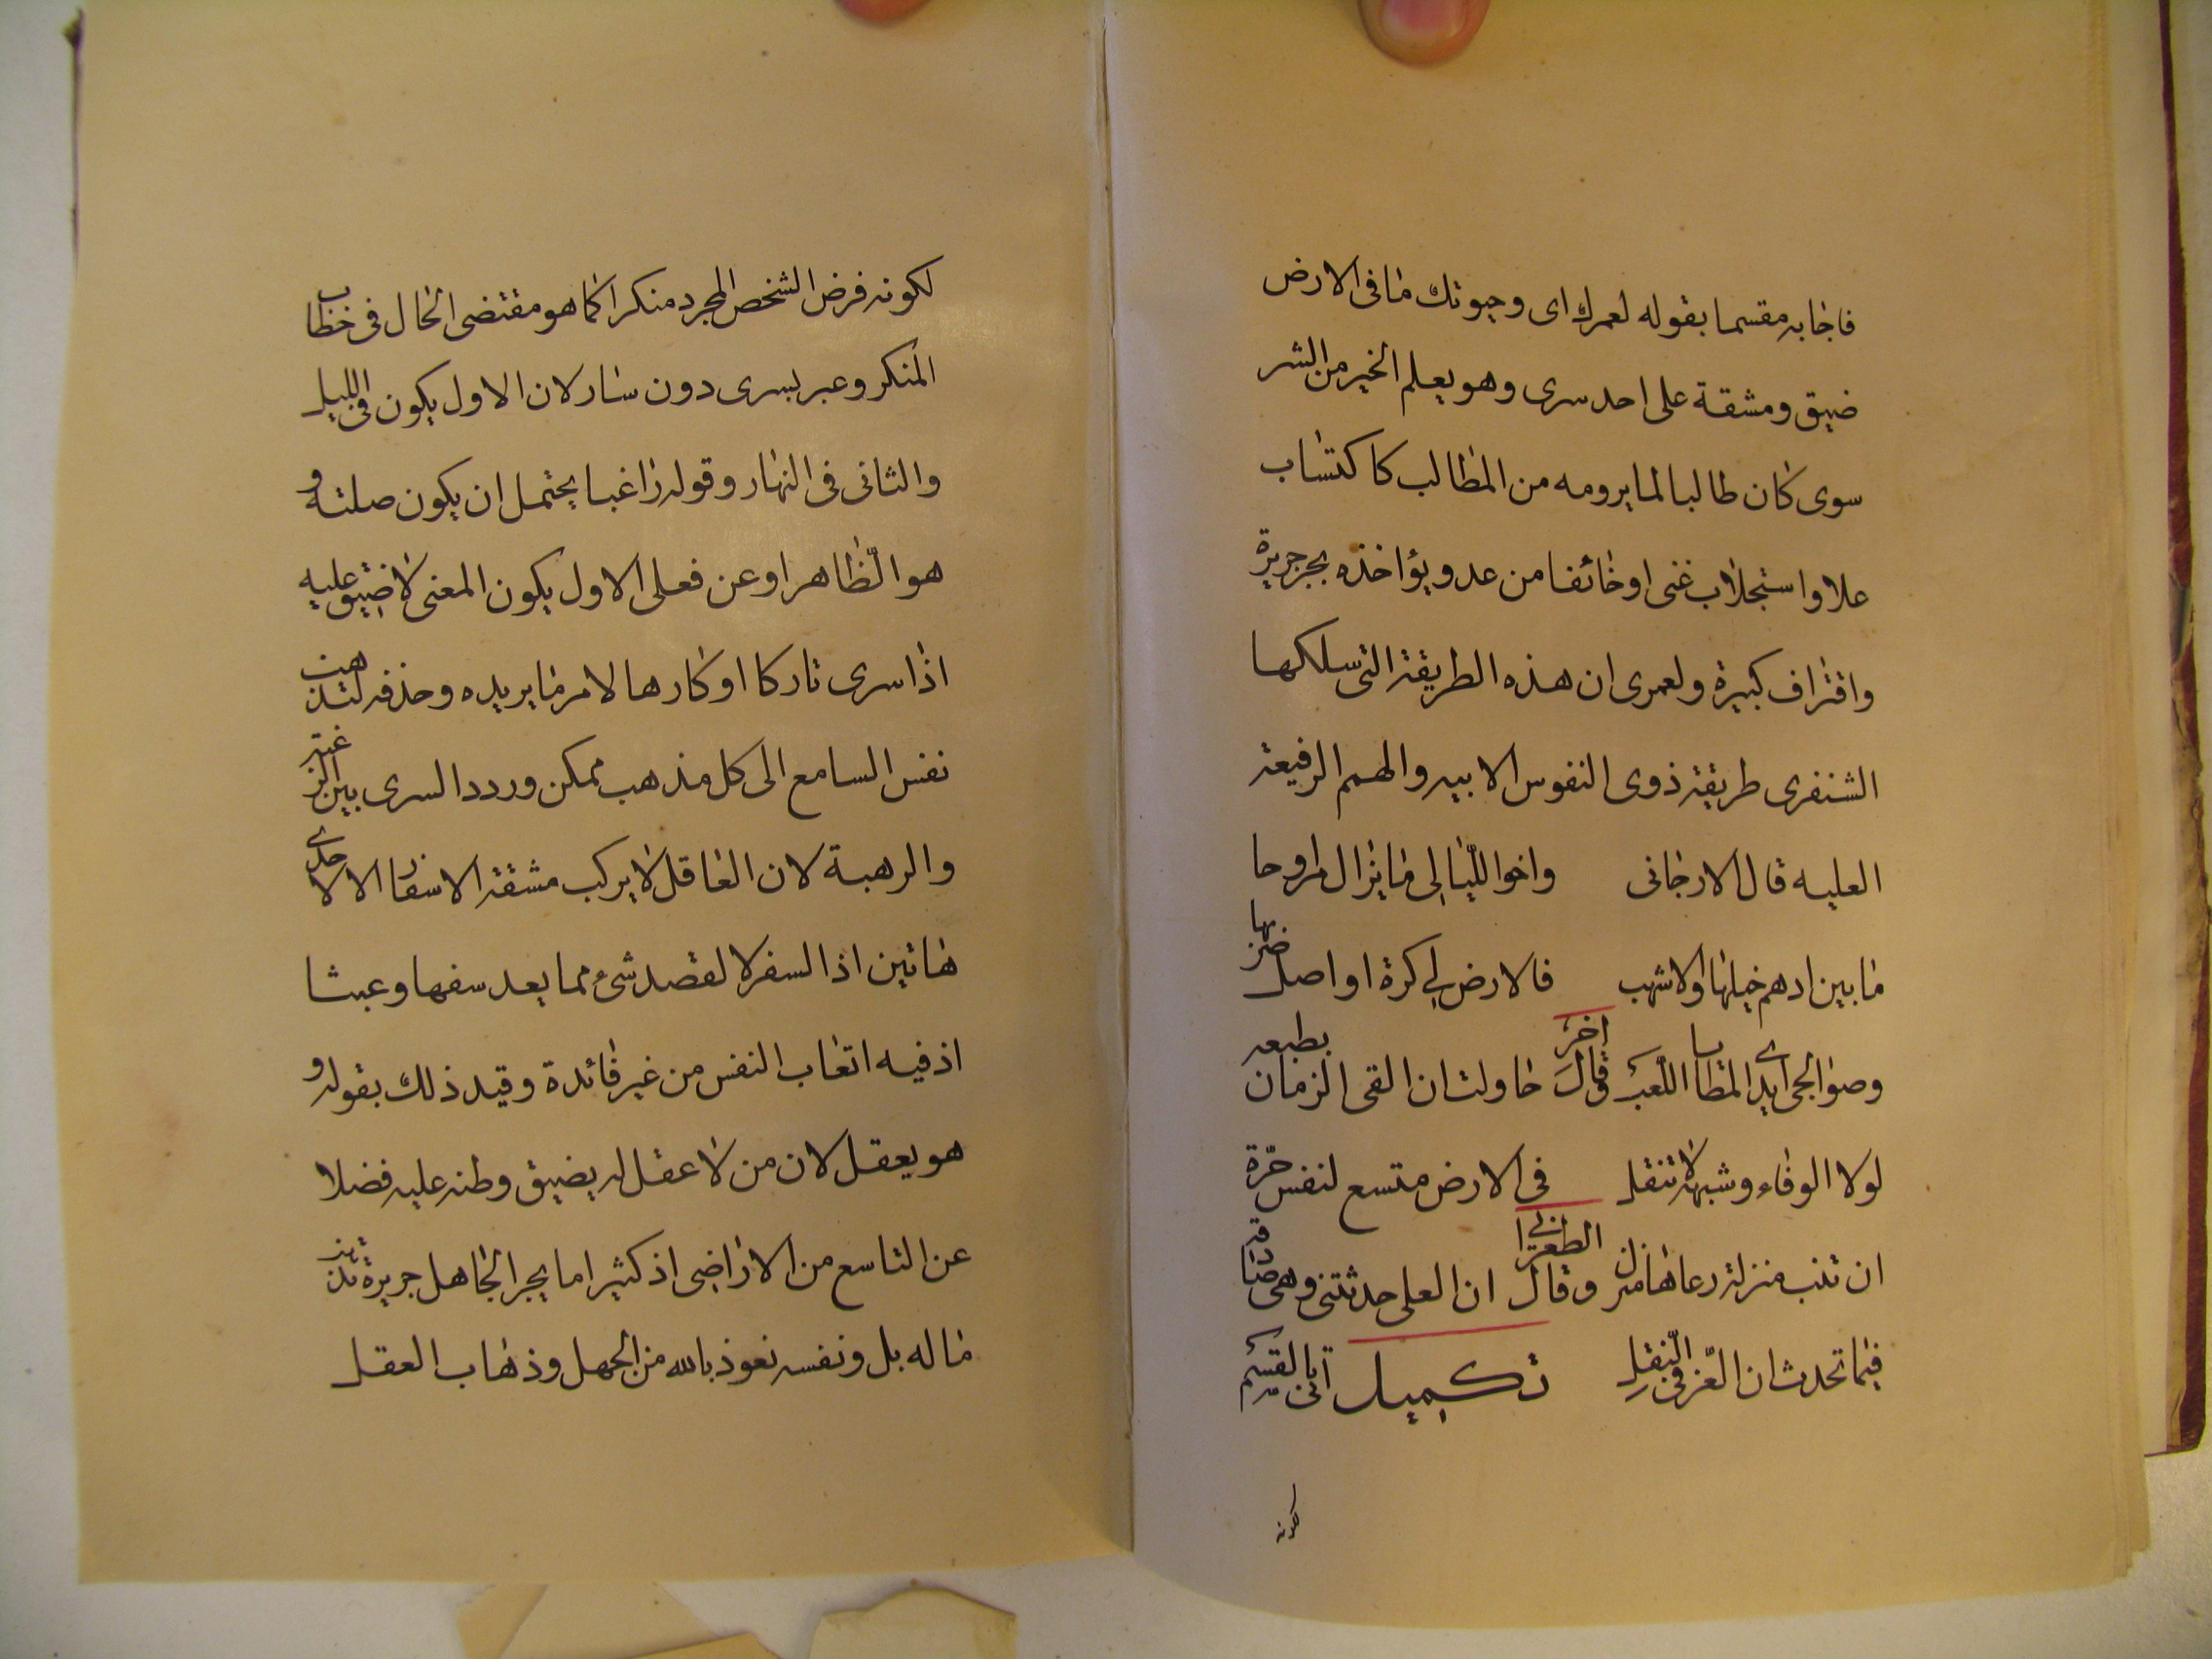 فاجابه مقسما بقوله لعمرك اى وحيوتك ما فى الارض
ضيق ومشقة على احد سرى وهو يعلم الخير من الشر
سوى كان طالبا لما يرومه من المطالب كاكتساب
علا واستجلاب غنى او خائفا من عدو يؤاخذه بجر جريرة
واقتراف كبيرة ولعمرى ان هذه الطريقة التى سلكها
الشنفرى طريقة ذوى النفوس الابيه والهمم الرفيعة
العليه قال الارجانى واخو الليالى ما يزال مراوحا
ما بين ادهم خيلها والاشهب فالارض لى كرة اواصل ضربها
وصوالجى ايدى المطايا اللغب وقال اخر حاولت ان القى الزمان بطبعه
لولا الوفاء وشبهه لا تنقل فى الارض متسع لنفس حرة
ان تنب منزلة دعاها منزل وقال الطغرائى ان العلى حدثتنى وهى صادقة
فيما تحدث ان العز فى النقل تكميل اتى بالقسم
لكونه
لكونه فرض الشخص المجرد منكرا كما هو مقتضى الحال فى خطاب
المنكر وعبر بسرى دون سار لان الاول يكون فى الليل
والثانى فى النهار وقوله راغبا يحتمل ان يكون صلته و
هو الظاهر او عن فعلى الاول يكون المعنى لا ضيق عليه
اذا سرى تاركا او كارها لامر ما يريده وحذفه لتذهب
نفس السامع الى كل مذهب ممكن وردد السرى بين الرغبة
والرهبة لان العاقل لا يركب مشقة الاسفار الا لاحدى
هاتين اذ السفر لا لقصد شئ مما يعد سفها وعبثا
اذ فيه اتعاب النفس من غير فائدة وقيد ذلك بقوله و
هو يعقل لان من لا عقل له يضيق وطنه عليه فضلا
عن التاسع من الاراضى اذ كثيرا ما يجر الجاهل جريرة تذهب
ماله بل ونفسه نعوذ بالله من الجهل وذهاب العقل